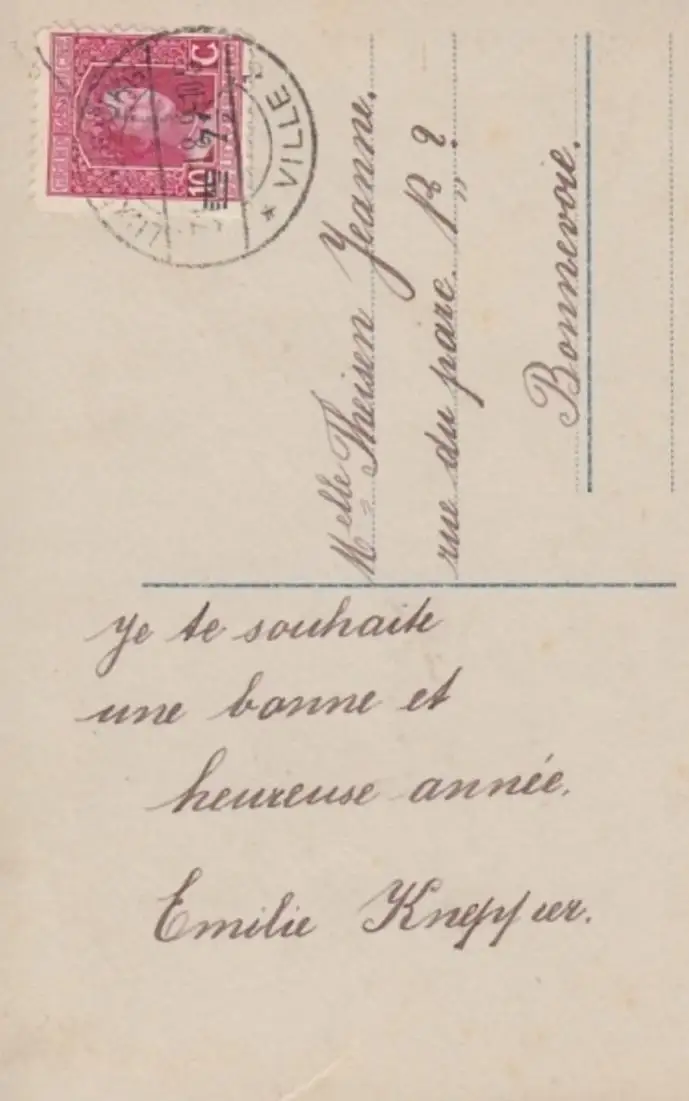 Je te souhaite
une bonne et
heureuse année.
Emilie Knepper.
Melle Theisen Jeanne.
rue du parc.
Bonnevoie.
10 C
VILLE